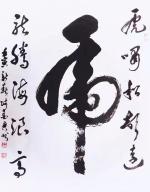 虎嘯松聲遠
虎
龍騰海浪高